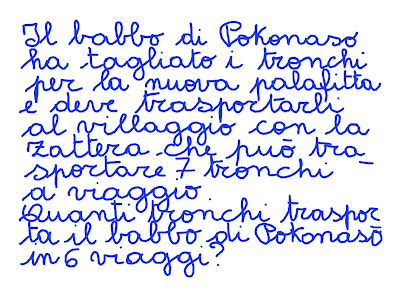 Il babbo di Pokonaso
ha tagliato i tronchi
per la nuova palafitta
e deve trasportarli
al villaggio con la
zattera che può tra_
sportare 7 tronchi
a viaggio.
Quanti tronchi traspor
ta il babbo di Pokonaso
in 6 viaggi?